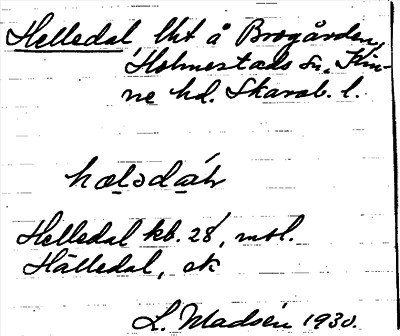 Helledal lht å Brogården,
Holmestads sn, Kin-
ne hd. Skarab. l.
hæləda̱ḷ
Helledal kb. 28, mtl.
Hälledal, ek
L. Madsén 1930.